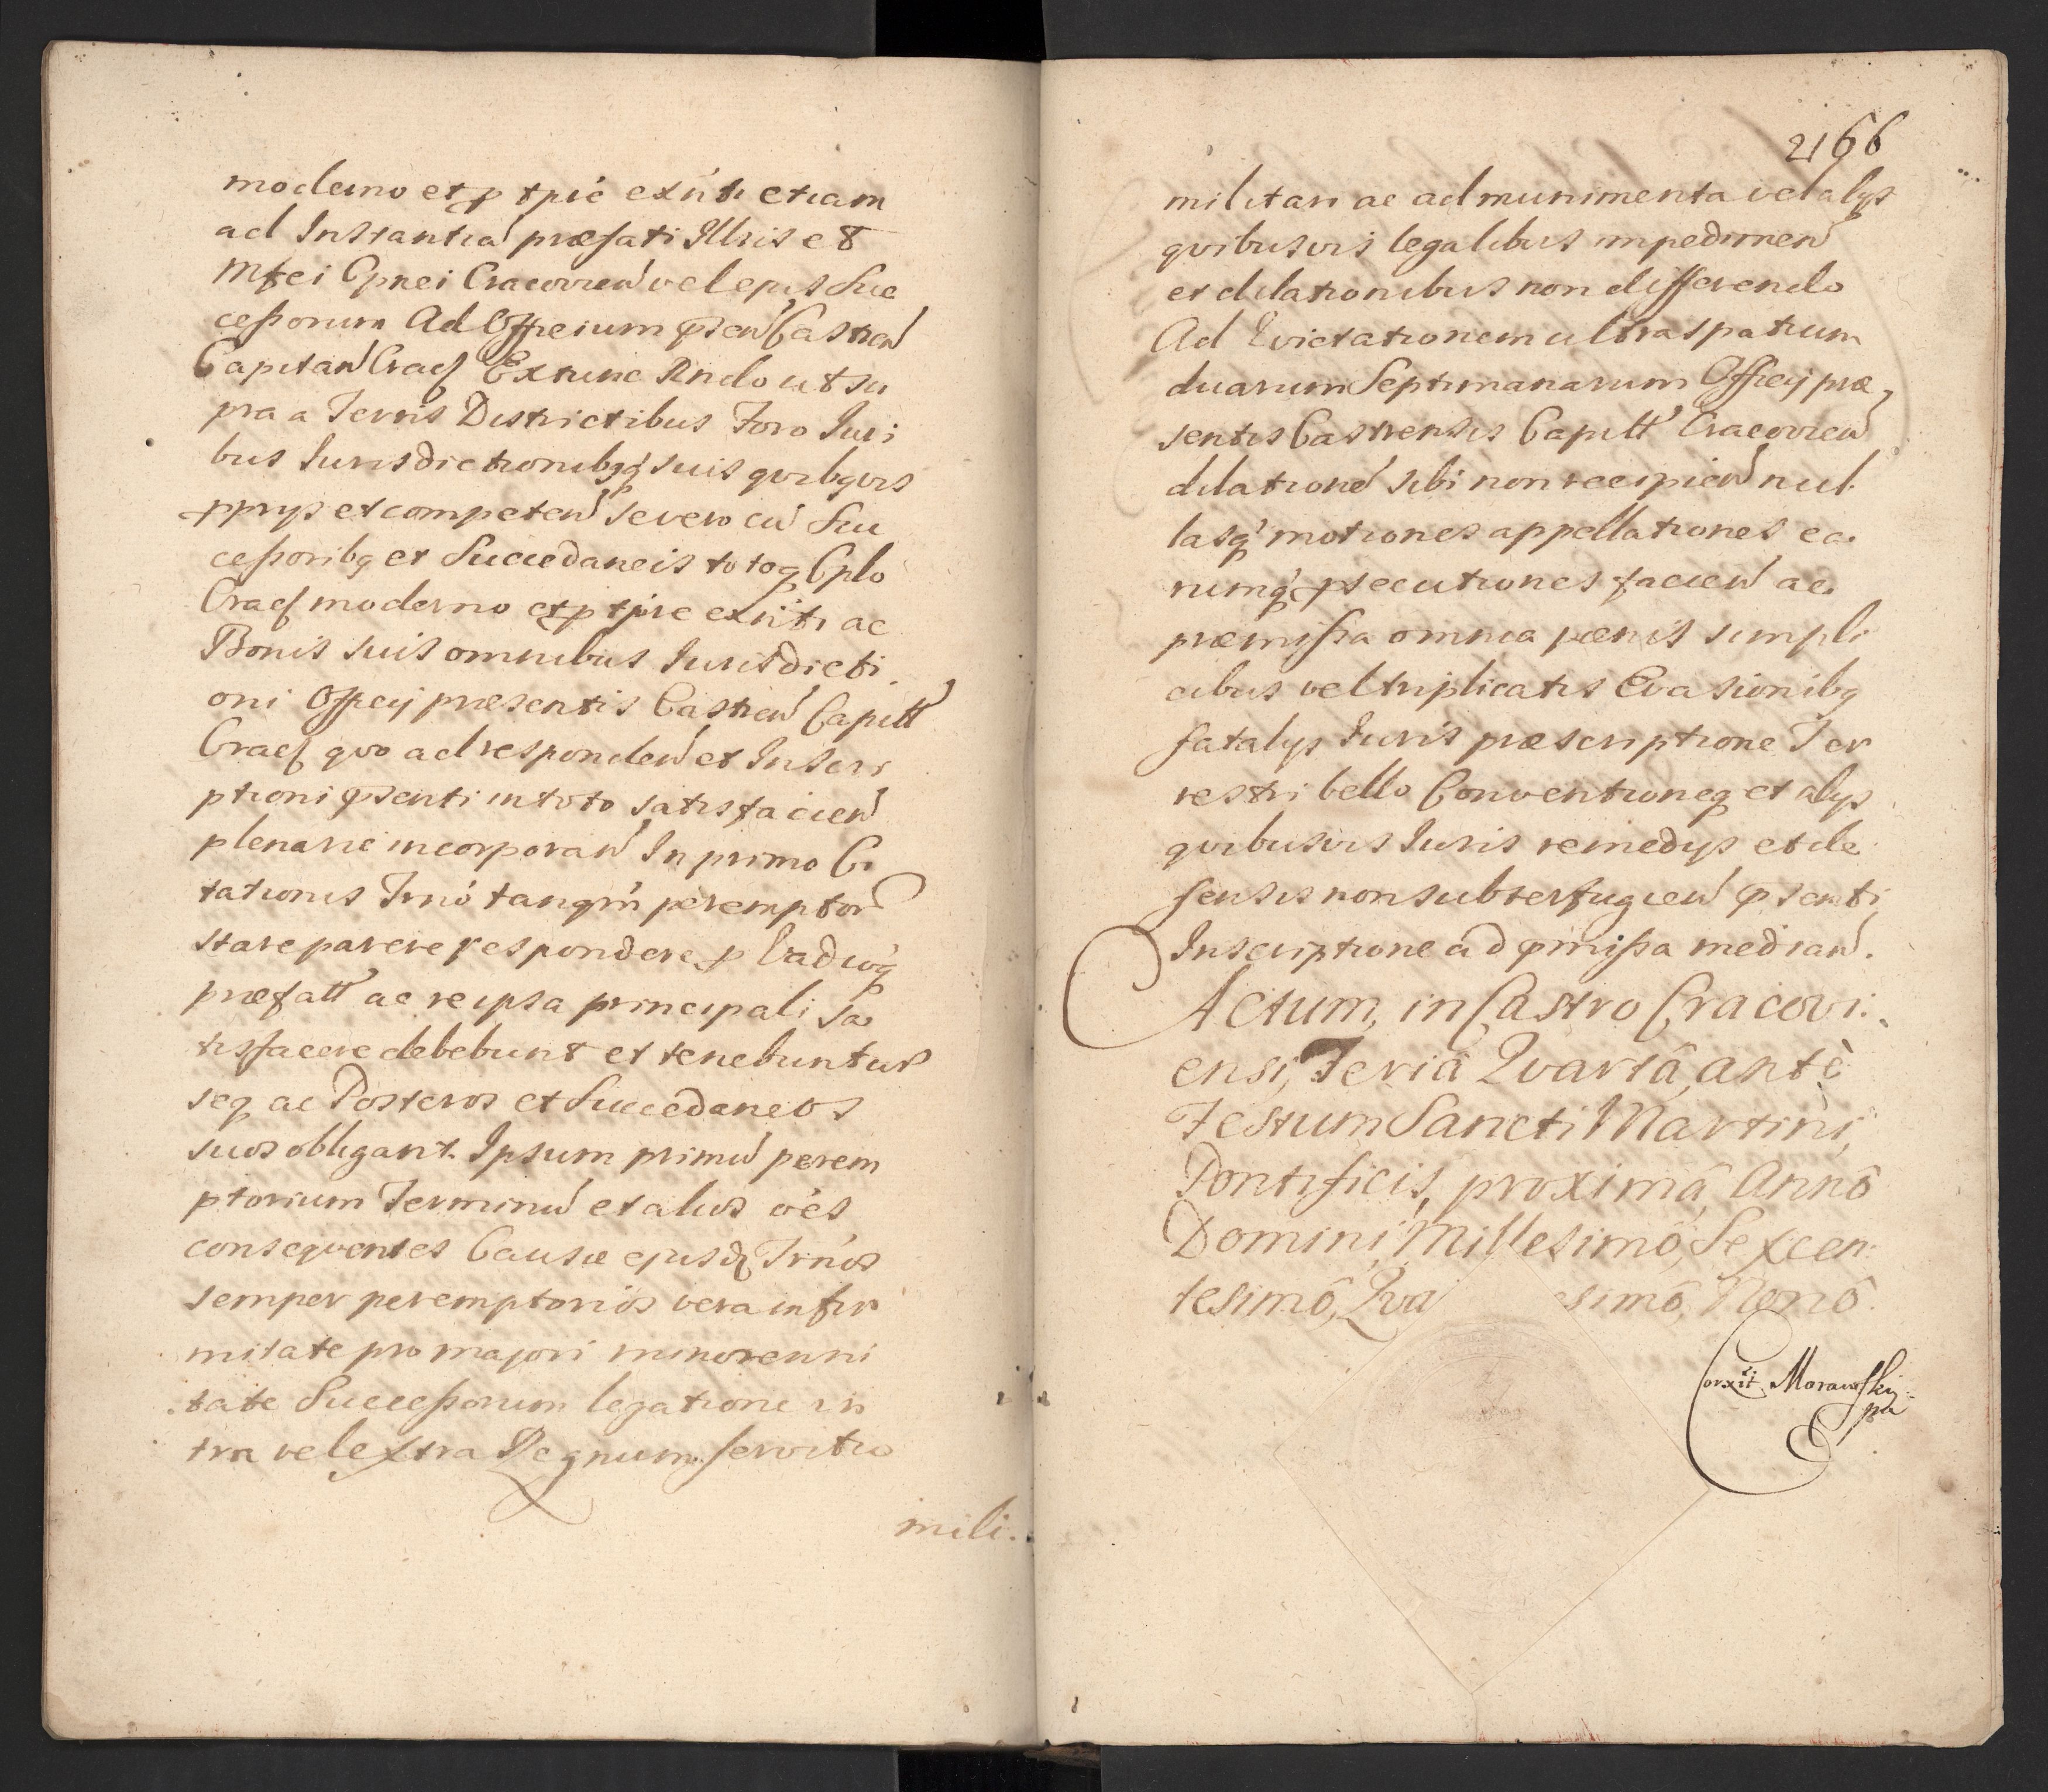 moderno et p tpre exnti etiam
ad Instantiã præfati Illris et
Mfei Cpnei Cracovien vel ejus Suc
cessorum Ad Officium psen Castren
Capitan Crac Extunc Rndo ut su
pra a Terris Districtibus Foro Juri
bus Jurisdictionibqq suis qvibqvis
pprijs et competen se vero cũ Suc
cessoribq et Succedaneis totoq Cplo
Crac moderno et p tpre exnti ac
Bonis suis omnibus Jurisdicti
oni Officij præsentis Castren Capitt
Crac qvo ad responden et Inscri
ptioni psenti in toto satisfacien
plenarie incorporan In primo Ci
tationis Trno tanqm peremptor
stare parere respondere p Vadioq
præfatt ac re ipsa principali sa
tisfacere debebunt et tenebuntur
seq ac Posteros et Succedaneos
suos obligant. Ipsum primũ perem
ptorium Terminũ et alios oẽs
conseqventes Causæ ejusd Trnos
semper peremptorios vera infir
mitate pro majori minorenni
tate Successorum legatione in
tra vel extra Regnum servitio
mili.
2166
militari ac ad munimenta vel alijs
qvibusvis legalibus impedimen
et dilationibus non differendo
Ad Evictationem ultra spatium
duarum Septimanarum Officij præ
sentis Castrensis Capitt Cracovien
dilationẽ sibi non recipien nul
lasq motiones appellationes ea
rumq psecutiones facien ac
præmissa omnia pænis simpli
cibus vel triplicatis Evasionibq
fatalijs Juris præscriptione Ter
restri bello Conventioneq et alijs
qvibusvis Juris remedijs et de
fensis non subterfugien psenti
Inscriptione ad pmissa median.
Actum, in Castro Cracovi:
ensi, Feriâ Qvartâ, antè
Festum Sancti Martini,
Pontificis, proximâ, Annô
Domini, Millesimô, Sexcen
tesimô, Qva simô, Nonô.
Corxit Morawsky